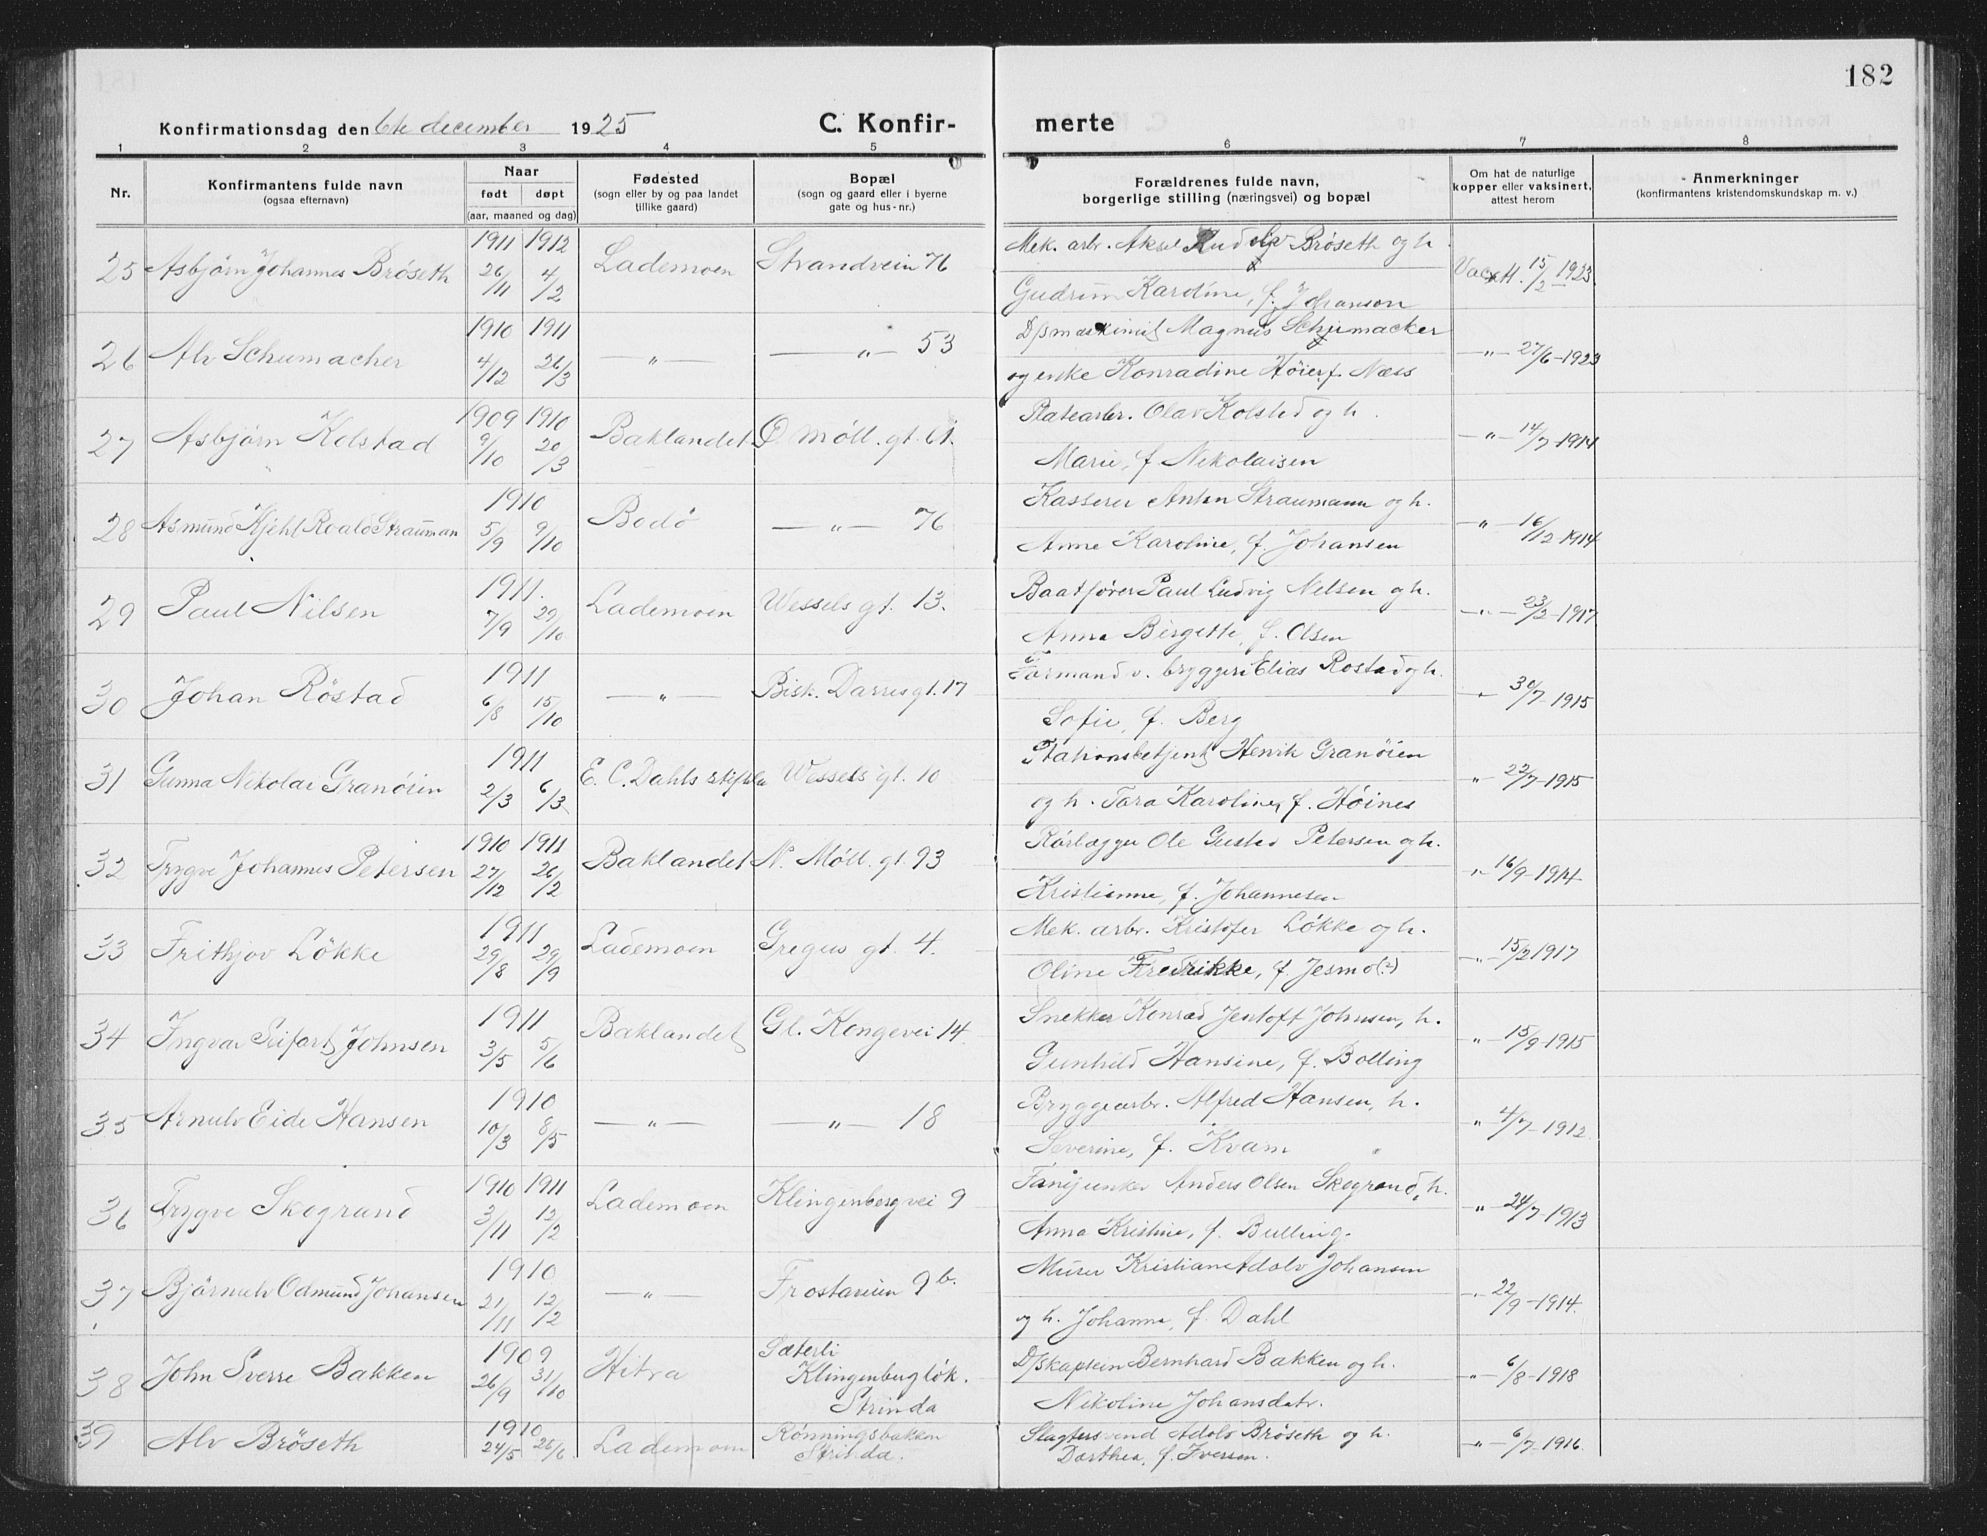 182
Konfirmationsdag den 6te december 1925 C. Konfir- merte
1 2 3 4 5 6 7 8
Nr. Konfirmantens fulde navn (ogsaa efternavn) Naar født døpt (aar, maaned og dag) Fødested (sogn eller by og paa landet tillike gaard) Bopæl (sogn og gaard eller i byerne gate og hus-nr.) Forældrenes fulde navn, borgerlige stilling (næringsvei) og bopæl Om hat de naturlige kopper eller vaksinert, attest herom Anmerkninger (konfirmantens kristendomskundskap m. v.)
25 Asbjørn Johannes Brøseth 1911 26/11 1912 4/2 Lademoen Strandvein 76 Mek. arb. Aksel Brøseth og h. Gudrun Karoline, f. Johanson 15/2 1923
26 Alv Schumacher 1910 4/12 1911 26/3 —"— —"— 53 Magnus Schumacker og enke Konradine Høier f. Næss —"— 27/6-1923
27 Asbjørn Kolstad 1909 9/10 1910 20/3 Baklandet Ø. Möll. gt. 61. Platearbr. Olav Kolsted og h. Marie, f Nikolaisen —"— 14/7-1914
28 Asmund Kjehl Roald Strauman 1910 5/9 9/10 Bodö —"— 76 Kasserer Anton Straumann og h. Anne Karoline, f. Johansen —"— 16/12-1914
29 Paul Nilsen 1911. 7/9 29/10 Lademoen Wessels gt. 13. Baatfører Paul Ludvig Nelsen og h. Anna Bergette, f. Olsen —"— 23/2-1917
30 Johan Röstad 1911 6/8 15/10 —"— Bisk. Darres gt. 17 Formand v. bryggeri Elias Rostad og h. Sofie, f. Berg " 30/7-1915
31 Gunna Nikolai Granöien 1911 2/3 6/3 E. C. Dahls Wessels gt. 10 Stationsbetjent Henrik Granöien og h. Tora Karoline, f. Höines " 22/7-1915
32 Trygve Johannes Petersen 1910 27/12 1911 26/2 Baklandet N. Möll. gt. 93 Rørlægger Ole Gustav Petersen og h. Kristianne, f. Johannesen " 16/9-1914
33 Frithjov Lökke 1911 29/8 29/9 Lademoen Gregus gt. 4. Mek. arbr. Kristofer Lökke og h. Oline Fredrikke, f. Jesmo(?) —"— 15/2 1917
34 Ingvar Johnsen 1911 3/5 5/6 Baklandet Gl. Kongevei 14 Snekker Konrad Jentoft Johnsen, h. Gunhild Hansine, f. Bolling " 15/9-1915
35 Arnulv Eide Hansen 1910 10/3 8/5 —"— —"— 18 Bryggearbr. Alfred Hansen, h. Severine, f. Kvam " 4/7-1912
36 Trygve Skogrand 1910 3/11 1911 12/2 Lademoen Klingenbergvei 9 Fanejunker Anders Olsen Skogrand, h. Anna Kristine, f. Bulling. " 24/7-1913
37 Bjørnulv Odmund Johansen 1910 21/11 12/2 —"— Frostaveien 9 b. Murer Kristian Adolv Johansen og h. Johanna, f. Dahl —"— 22/9-1914.
38 John Sverre Bakken 1909 26/9 31/10 Hitra Sæterli Klingenburgløk. Strinda D/skaptein Bernhard Bakken og h. Nikoline Johansdatr. —"— 6/8-1918
39 Alv Brøseth 1910 24/5 26/6 Lademoen Rønningsbakken Strinda. Slagtersvend Adolv Brøseth og h. Dorthea, f. Iversen. —"— 6/7-1916